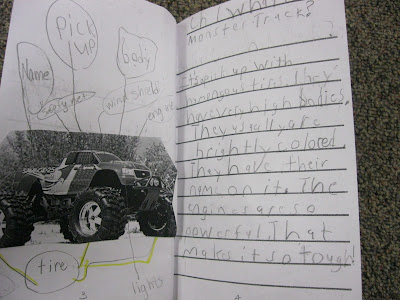 Pick
up
body
Name
safty net
windshield
engine
tire
lights
3
Ch 1 What
Monster Truck?
up with
humongous tires. They
have very high bodies.
They usually are
brightly colored.
They have their
name on it. The
engines are so
powerful. That
makes it so tough!
4